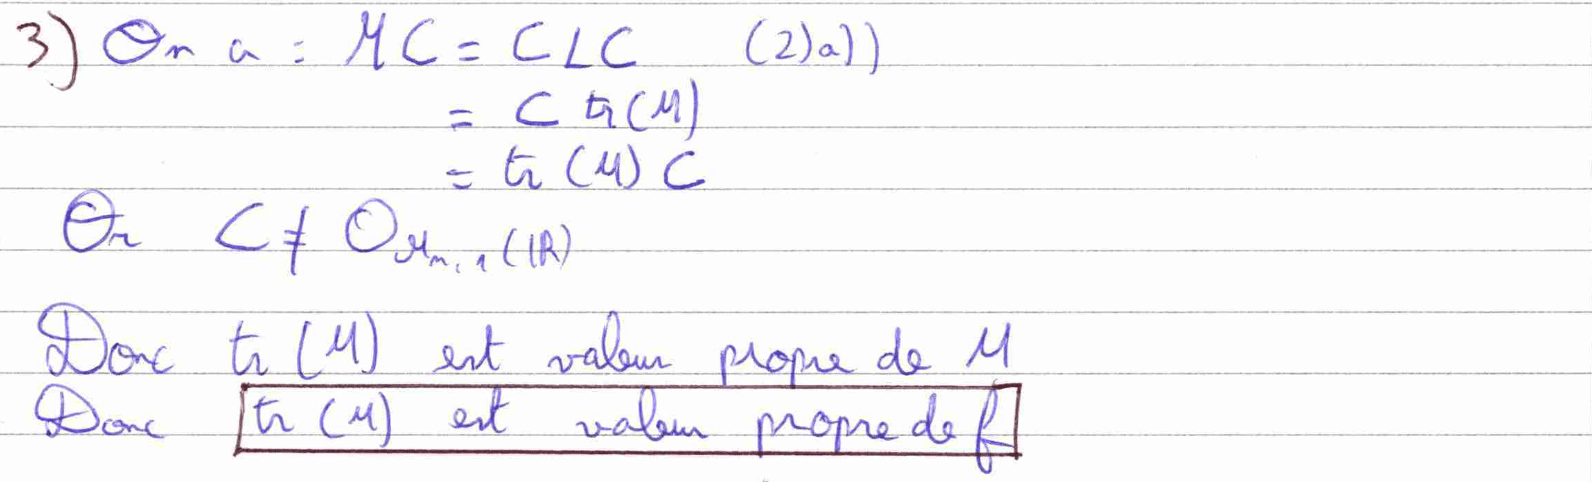 3) On a : MC = CLC (2)a))
= C tr(M)
= tr(M) C
Or C ≠ 0_{M_{n,1}(IR)}
Donc tr(M) est valeur propre de M
Donc tr(M) est valeur propre de f